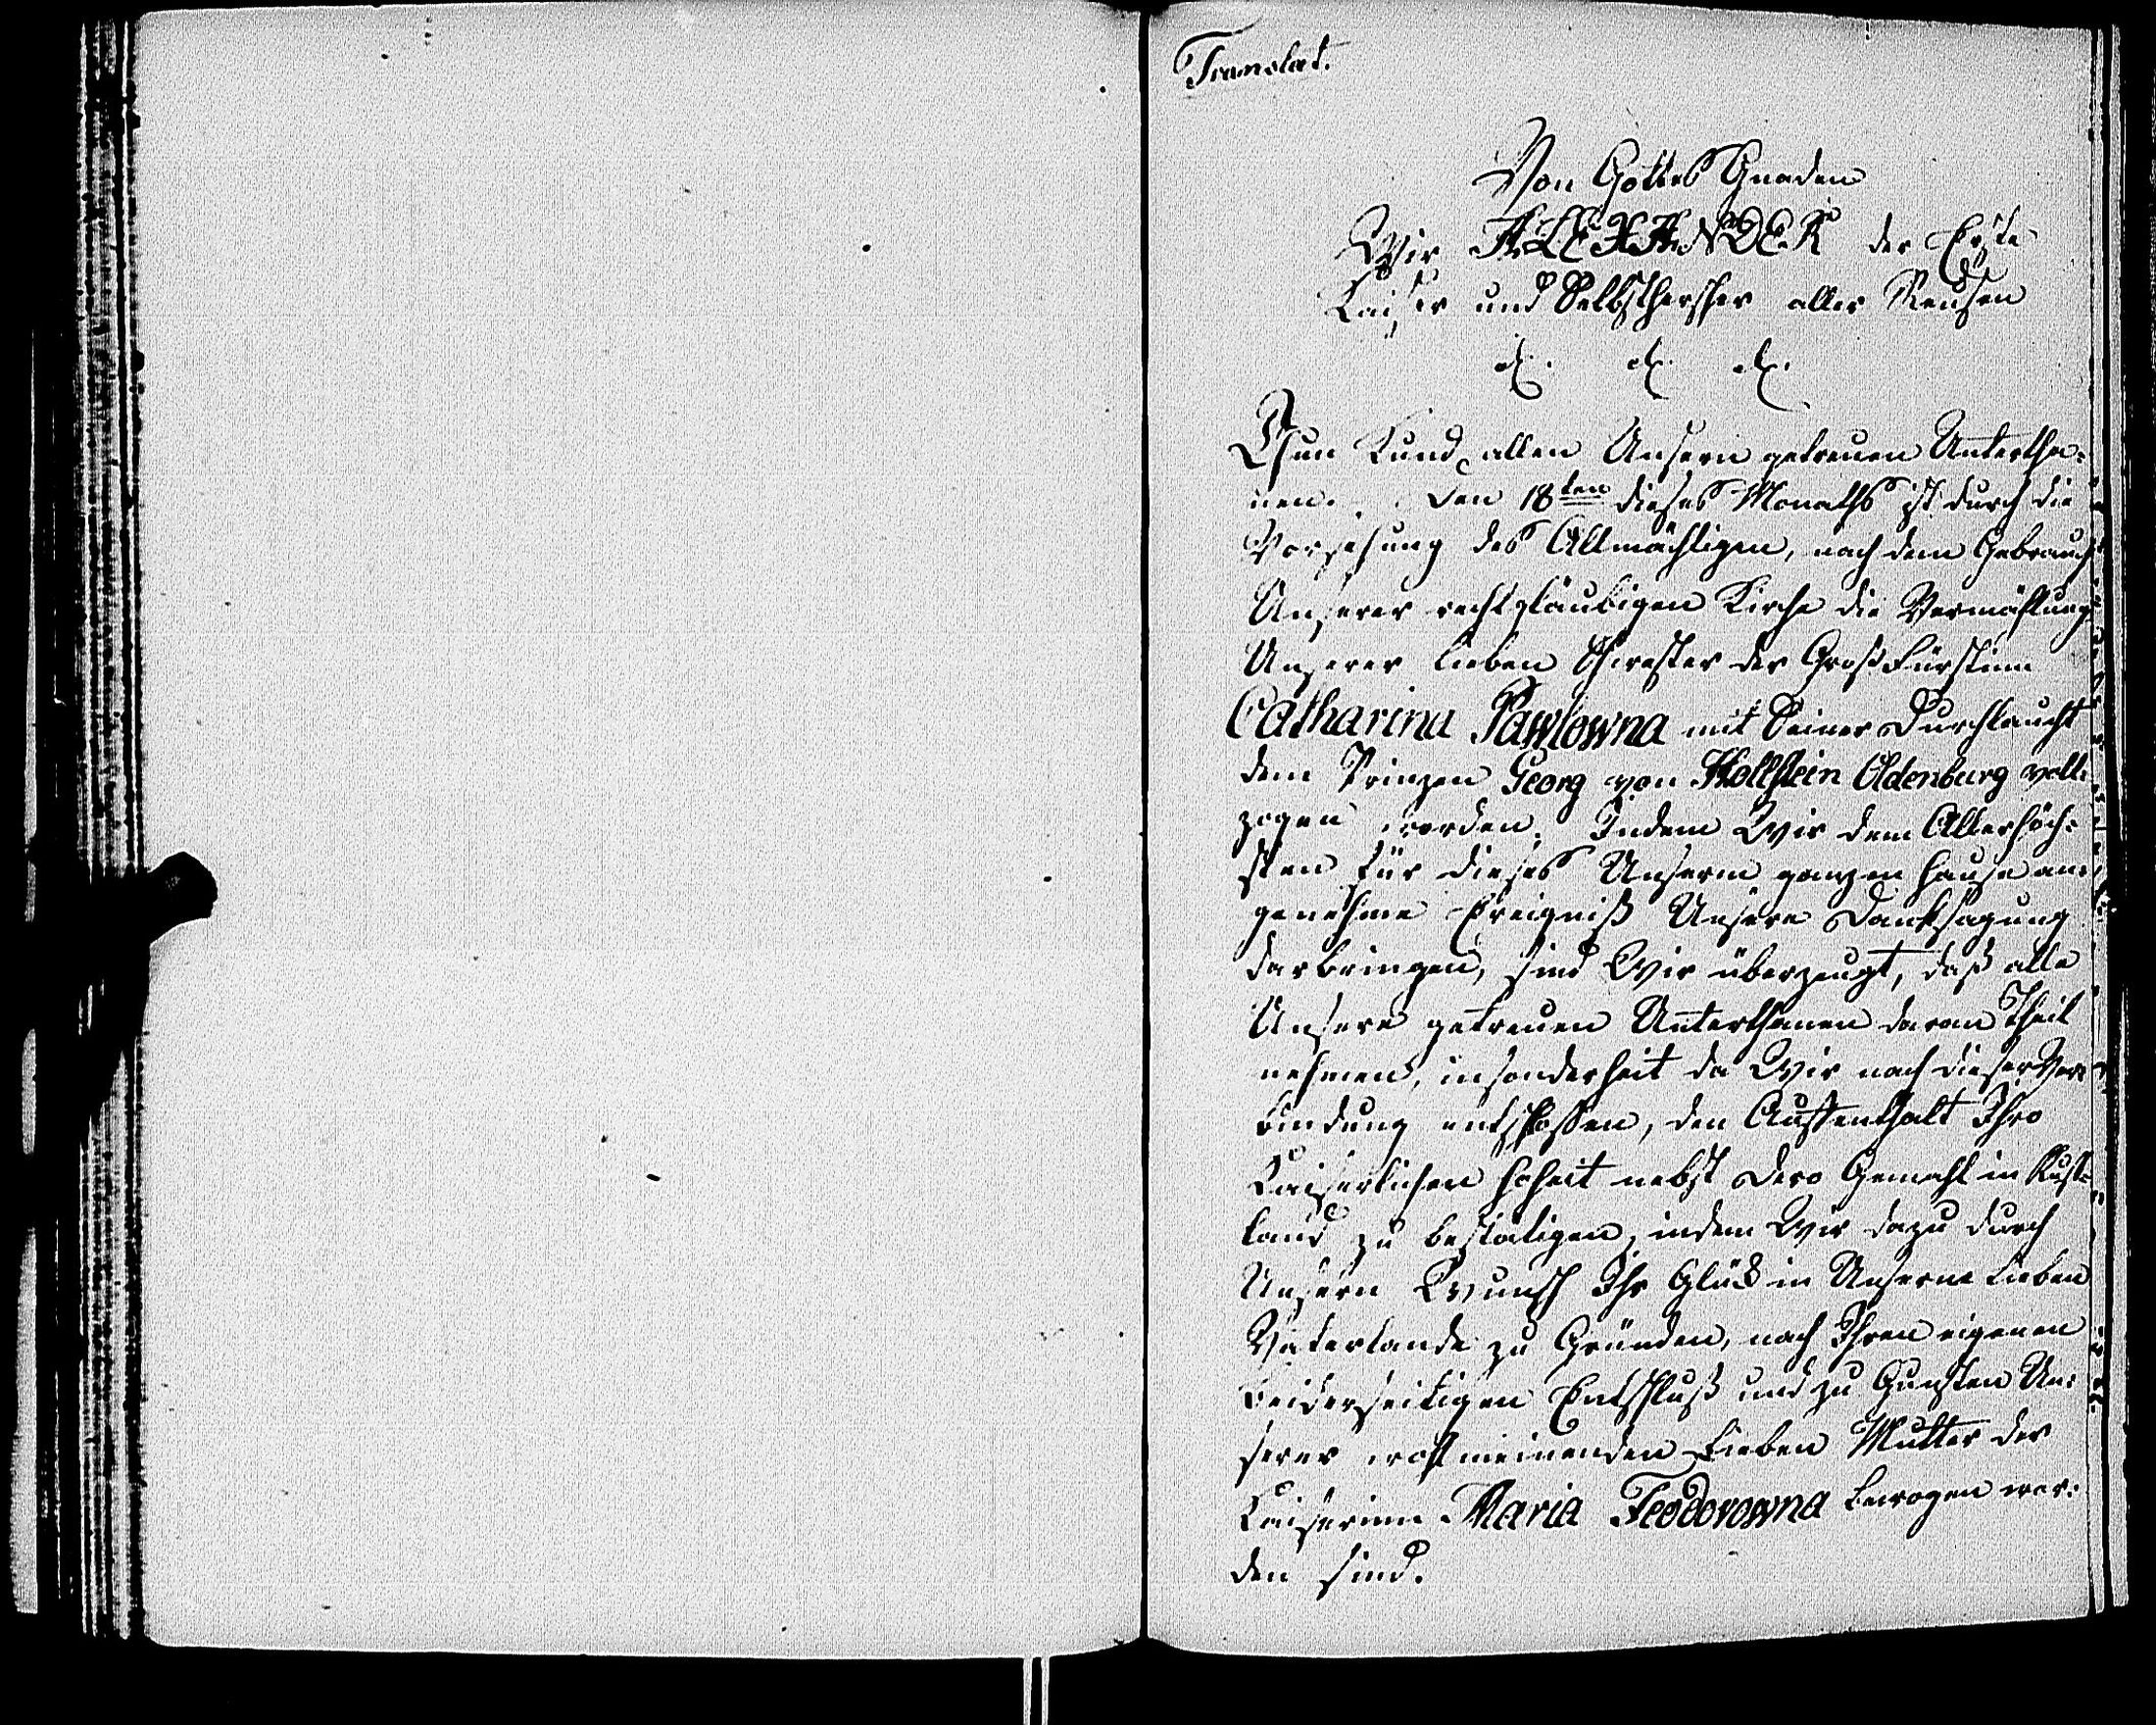 Translat.
Von Gottes Gnaden
Wir ALEXANDER der Erste
Kaiser und Selbstherscher aller Reusen
etc. etc. etc.
Thun Kund allen Unsern getreuen Untertha-
nen. Den 18ten dieses Monaths ist durch die
Vorsehung des Allmächtigen, nach dem Gebrauch
Unserer rechtgläubigen Kirche die Vermählung
Unserer lieben Schwester der Großfürstinn
Catharina Pawlowna mit Seiner Durchlaucht
dem Prinzen Georg von Hollstein Oldenburg voll-
zogen worden. Indem Wir dem Allerhöch-
sten für dieses Unserm ganzen Hause an-
genehme Ereigniß Unsere Danksagung
darbringen, sind Wir überzeugt, daß alle
Unsere getreuen Unterthanen daran Theil
nehmen, insonderheit da Wir nach dieser Ver-
bindung entschlossen, den Auffenthalt Ihro
Kaiserlichen Hoheit nebst Dero Gemahl in Ruß-
land zu bestätigen, indem Wir dazu durch
Unsern Wunsch Ihr Glück in Unserm lieben
Vaterlande zu Gründen, nach Ihren eigenen
beiderseitigen Entschluß und zu Gunsten Un-
serer wohlmeinenden Lieben Mutter der
Kaiserinn Maria Feodorowna bewogen wor-
den sind.